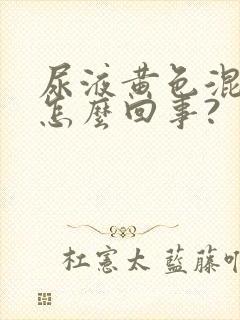 尿液黄色混
怎麼回事?
杜憲太 藍藤